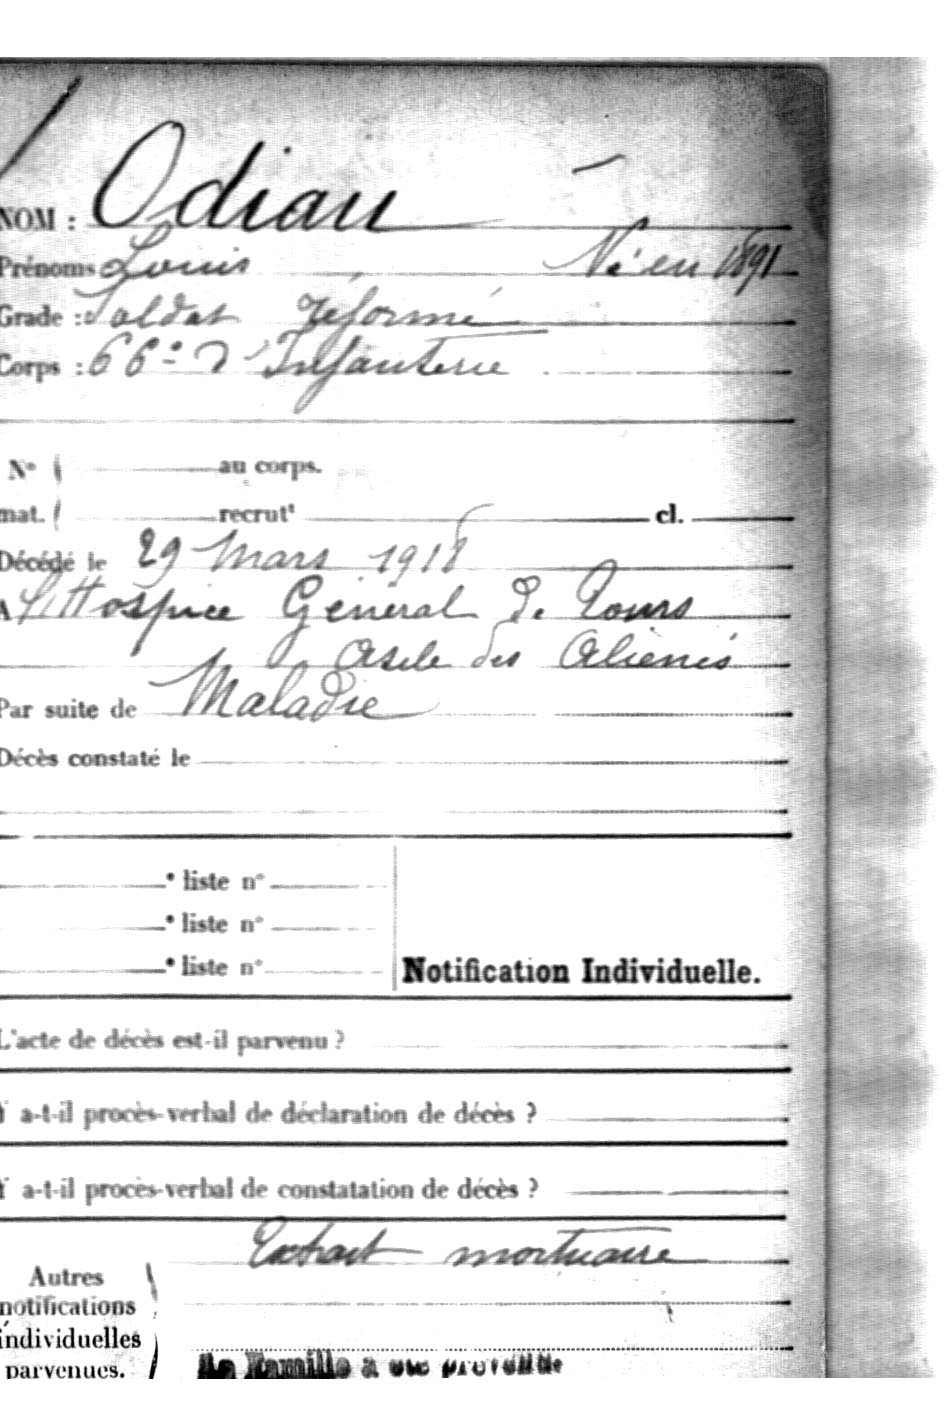 NOM : Odiau
Prénoms Louis Né en 1891
Grade : Soldat réformé
Corps : 66e d'Infanterie
No au corps.
mat. recrutt cl.
Décédé le 29 Mars 1918
A l'Hospice Général de Tours
Asile des Aliénés
Par suite de Maladie
Décès constaté le
e liste no
e liste no
e liste no Notification Individuelle.
L'acte de décès est-il parvenu ?
Y a-t-il procès-verbal de déclaration de décès ?
Y a-t-il procès-verbal de constatation de décès ?
Extrait mortuaire
Autres
notifications
individuelles
parvenues.
La Famille a été prévenue